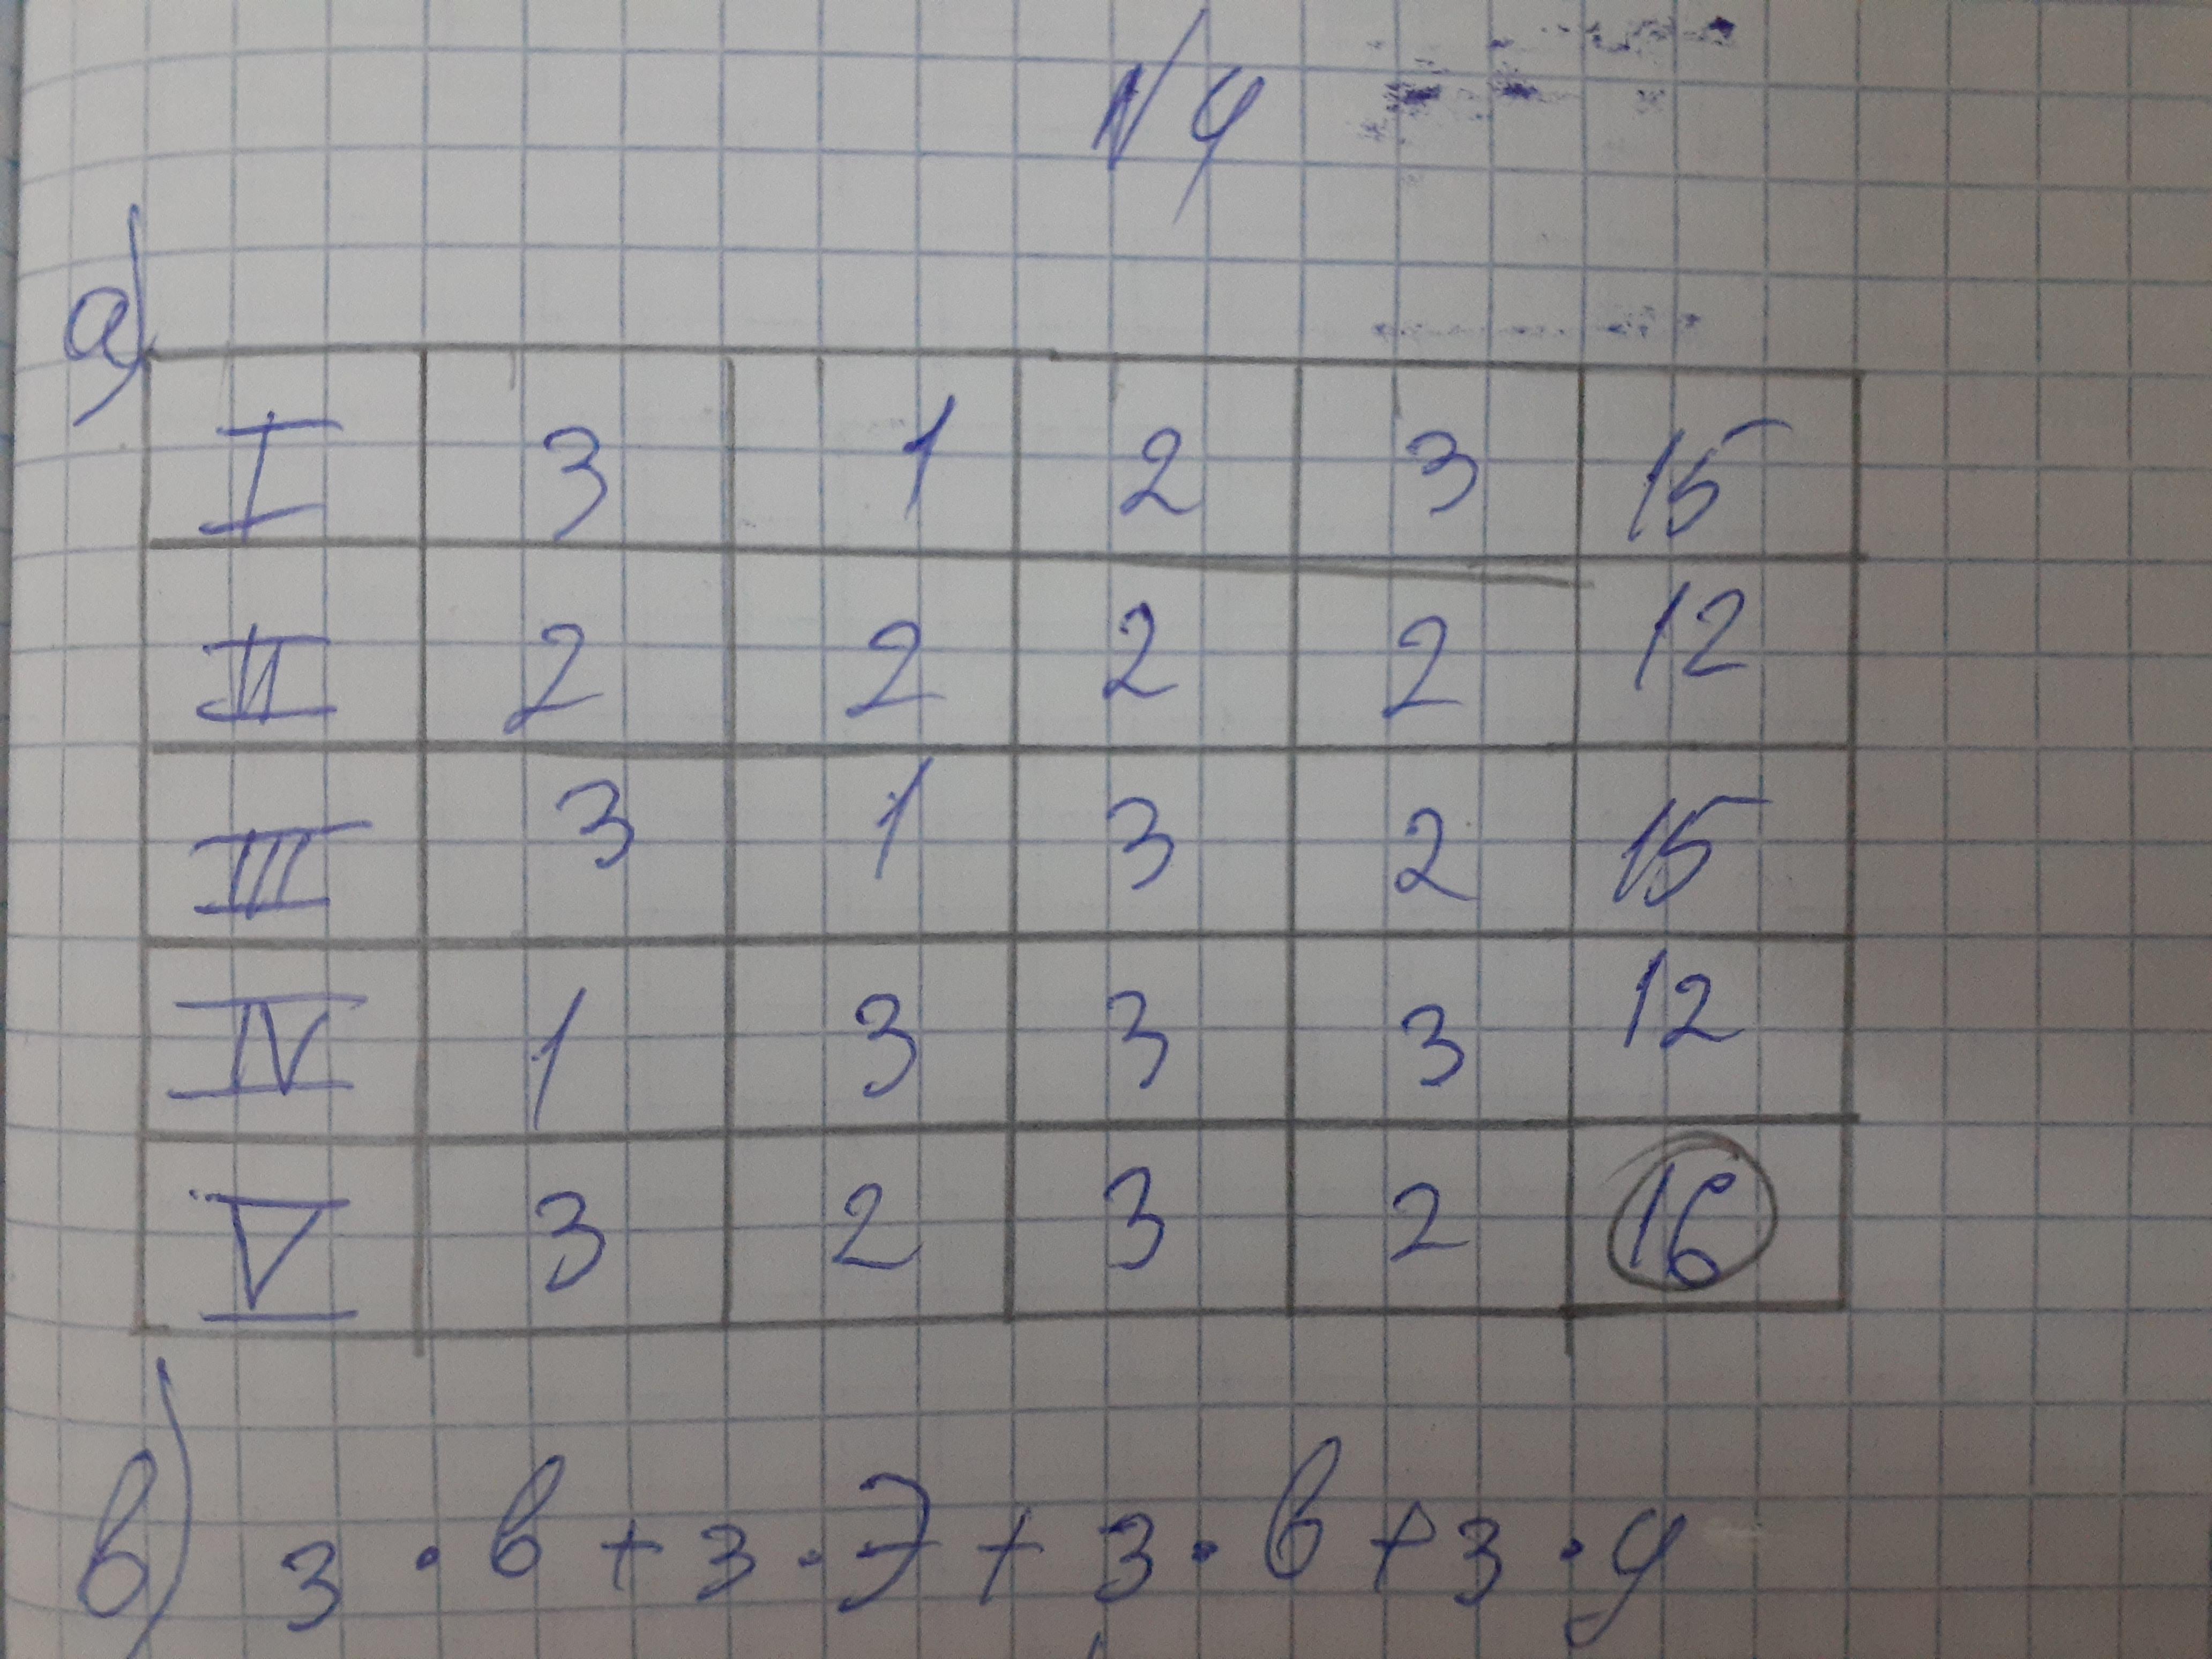 № 4
а)
I 3 1 2 3 15
II 2 2 2 2 12
III 3 1 3 2 15
IV 1 3 3 3 12
V 3 2 3 2 16
в) 3 · в + 3 · Э + 3 · в + 3 · у